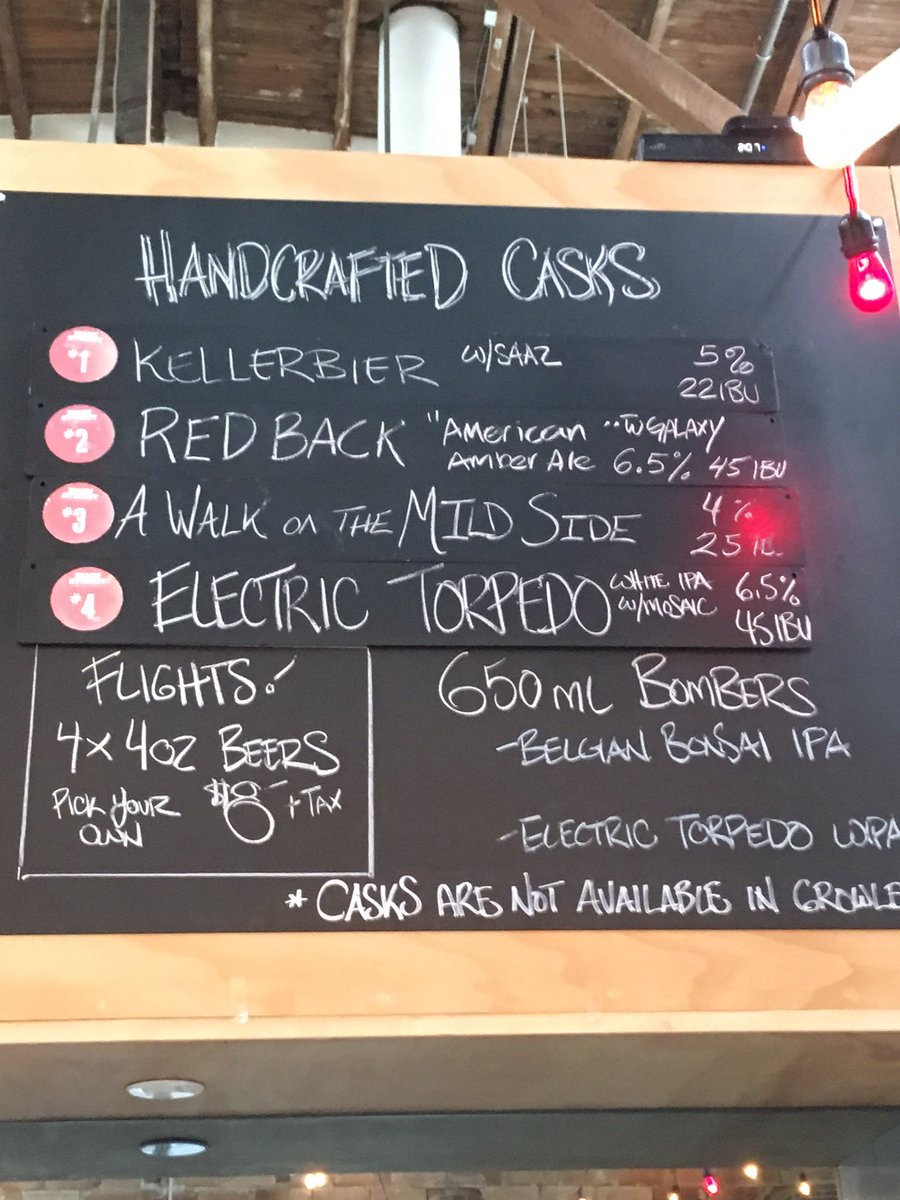 HANDCRAFTED CASKS
#1 KELLERBIER W/SAAZ 5%
22 IBU
#2 RED BACK "American ··W GALAXY
Amber Ale 6.5% 45 IBU
#3 A WALK ON THE MILD SIDE 4%
25
#4 ELECTRIC TORPEDO WHITE IPA 6.5%
W/MOSAIC 45 IBU
FLIGHTS!
4x4oz BEERS
PICK YOUR OWN $8 + TAX
650ML BOMBERS
-BELGIAN BONSAI IPA
-ELECTRIC TORPEDO WIPA
* CASKS ARE NOT AVAILABLE IN GROWLE